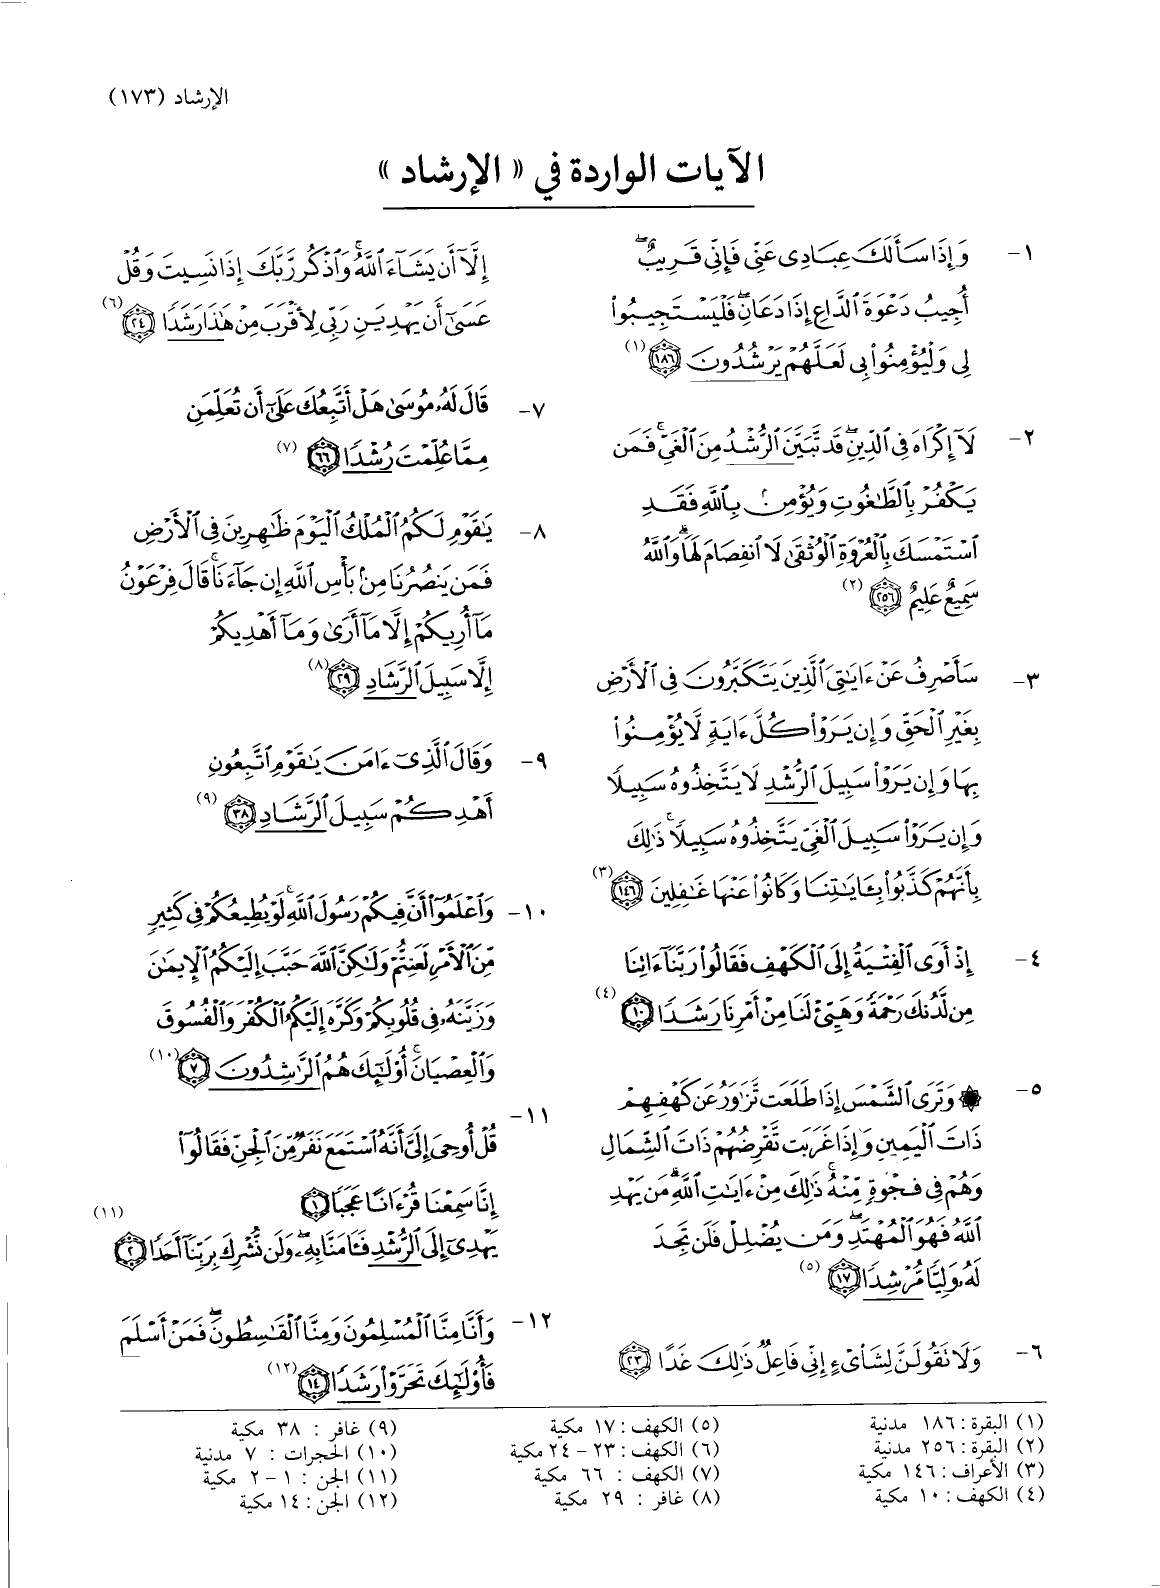 الإرشاد (١٧٣)
الآيات الواردة في « الإرشاد »
١- وَإِذَا سَأَلَكَ عِبَادِى عَنِّى فَإِنِّى قَرِيبٌ ۖ
أُجِيبُ دَعْوَةَ ٱلدَّاعِ إِذَا دَعَانِ ۖ فَلْيَسْتَجِيبُوا۟
لِى وَلْيُؤْمِنُوا۟ بِى لَعَلَّهُمْ يَرْشُدُونَ ١٨٦ (١)
٢- لَآ إِكْرَاهَ فِى ٱلدِّينِ ۖ قَد تَّبَيَّنَ ٱلرُّشْدُ مِنَ ٱلْغَىِّ ۚ فَمَن
يَكْفُرْ بِٱلطَّٰغُوتِ وَيُؤْمِنۢ بِٱللَّهِ فَقَدِ
ٱسْتَمْسَكَ بِٱلْعُرْوَةِ ٱلْوُثْقَىٰ لَا ٱنفِصَامَ لَهَا ۗ وَٱللَّهُ
سَمِيعٌ عَلِيمٌ ٢٥٦ (٢)
٣- سَأَصْرِفُ عَنْ ءَايَٰتِىَ ٱلَّذِينَ يَتَكَبَّرُونَ فِى ٱلْأَرْضِ
بِغَيْرِ ٱلْحَقِّ وَإِن يَرَوْا۟ كُلَّ ءَايَةٍ لَّا يُؤْمِنُوا۟
بِهَا وَإِن يَرَوْا۟ سَبِيلَ ٱلرُّشْدِ لَا يَتَّخِذُوهُ سَبِيلًا
وَإِن يَرَوْا۟ سَبِيلَ ٱلْغَىِّ يَتَّخِذُوهُ سَبِيلًا ۚ ذَٰلِكَ
بِأَنَّهُمْ كَذَّبُوا۟ بِـَٔايَٰتِنَا وَكَانُوا۟ عَنْهَا غَٰفِلِينَ ١٤٦ (٣)
٤- إِذْ أَوَى ٱلْفِتْيَةُ إِلَى ٱلْكَهْفِ فَقَالُوا۟ رَبَّنَآ ءَاتِنَا
مِن لَّدُنكَ رَحْمَةً وَهَيِّئْ لَنَا مِنْ أَمْرِنَا رَشَدًا ١٠ (٤)
٥- ۞ وَتَرَى ٱلشَّمْسَ إِذَا طَلَعَت تَّزَٰوَرُ عَن كَهْفِهِمْ
ذَاتَ ٱلْيَمِينِ وَإِذَا غَرَبَت تَّقْرِضُهُمْ ذَاتَ ٱلشِّمَالِ
وَهُمْ فِى فَجْوَةٍ مِّنْهُ ۚ ذَٰلِكَ مِنْ ءَايَٰتِ ٱللَّهِ ۗ مَن يَهْدِ
ٱللَّهُ فَهُوَ ٱلْمُهْتَدِ ۖ وَمَن يُضْلِلْ فَلَن تَجِدَ
لَهُۥ وَلِيًّا مُّرْشِدًا ١٧ (٥)
٦- وَلَا تَقُولَنَّ لِشَا۟ىْءٍ إِنِّى فَاعِلٌ ذَٰلِكَ غَدًا ٢٣
إِلَّآ أَن يَشَآءَ ٱللَّهُ ۚ وَٱذْكُر رَّبَّكَ إِذَا نَسِيتَ وَقُلْ
عَسَىٰٓ أَن يَهْدِيَنِ رَبِّى لِأَقْرَبَ مِنْ هَٰذَا رَشَدًا ٢٤ (٦)
٧- قَالَ لَهُۥ مُوسَىٰ هَلْ أَتَّبِعُكَ عَلَىٰٓ أَن تُعَلِّمَنِ
مِمَّا عُلِّمْتَ رُشْدًا ٦٦ (٧)
٨- يَٰقَوْمِ لَكُمُ ٱلْمُلْكُ ٱلْيَوْمَ ظَٰهِرِينَ فِى ٱلْأَرْضِ
فَمَن يَنصُرُنَا مِنۢ بَأْسِ ٱللَّهِ إِن جَآءَنَا ۚ قَالَ فِرْعَوْنُ
مَآ أُرِيكُمْ إِلَّا مَآ أَرَىٰ وَمَآ أَهْدِيكُمْ
إِلَّا سَبِيلَ ٱلرَّشَادِ ٢٩ (٨)
٩- وَقَالَ ٱلَّذِىٓ ءَامَنَ يَٰقَوْمِ ٱتَّبِعُونِ
أَهْدِكُمْ سَبِيلَ ٱلرَّشَادِ ٣٨ (٩)
١٠- وَٱعْلَمُوٓا۟ أَنَّ فِيكُمْ رَسُولَ ٱللَّهِ ۚ لَوْ يُطِيعُكُمْ فِى كَثِيرٍ
مِّنَ ٱلْأَمْرِ لَعَنِتُّمْ وَلَٰكِنَّ ٱللَّهَ حَبَّبَ إِلَيْكُمُ ٱلْإِيمَٰنَ
وَزَيَّنَهُۥ فِى قُلُوبِكُمْ وَكَرَّهَ إِلَيْكُمُ ٱلْكُفْرَ وَٱلْفُسُوقَ
وَٱلْعِصْيَانَ ۚ أُو۟لَٰٓئِكَ هُمُ ٱلرَّٰشِدُونَ ٧ (١٠)
١١- قُلْ أُوحِىَ إِلَىَّ أَنَّهُ ٱسْتَمَعَ نَفَرٌ مِّنَ ٱلْجِنِّ فَقَالُوٓا۟
إِنَّا سَمِعْنَا قُرْءَانًا عَجَبًا ١
يَهْدِىٓ إِلَى ٱلرُّشْدِ فَـَٔامَنَّا بِهِۦ ۖ وَلَن نُّشْرِكَ بِرَبِّنَآ أَحَدًا ٢ (١١)
١٢- وَأَنَّا مِنَّا ٱلْمُسْلِمُونَ وَمِنَّا ٱلْقَٰسِطُونَ ۖ فَمَنْ أَسْلَمَ
فَأُو۟لَٰٓئِكَ تَحَرَّوْا۟ رَشَدًا ١٤ (١٢)
(١) البقرة : ١٨٦ مدنية
(٢) البقرة : ٢٥٦ مدنية
(٣) الأعراف : ١٤٦ مكية
(٤) الكهف : ١٠ مكية
(٥) الكهف : ١٧ مكية
(٦) الكهف : ٢٣ - ٢٤ مكية
(٧) الكهف : ٦٦ مكية
(٨) غافر : ٢٩ مكية
(٩) غافر : ٣٨ مكية
(١٠) الحجرات : ٧ مدنية
(١١) الجن : ١ - ٢ مكية
(١٢) الجن : ١٤ مكية